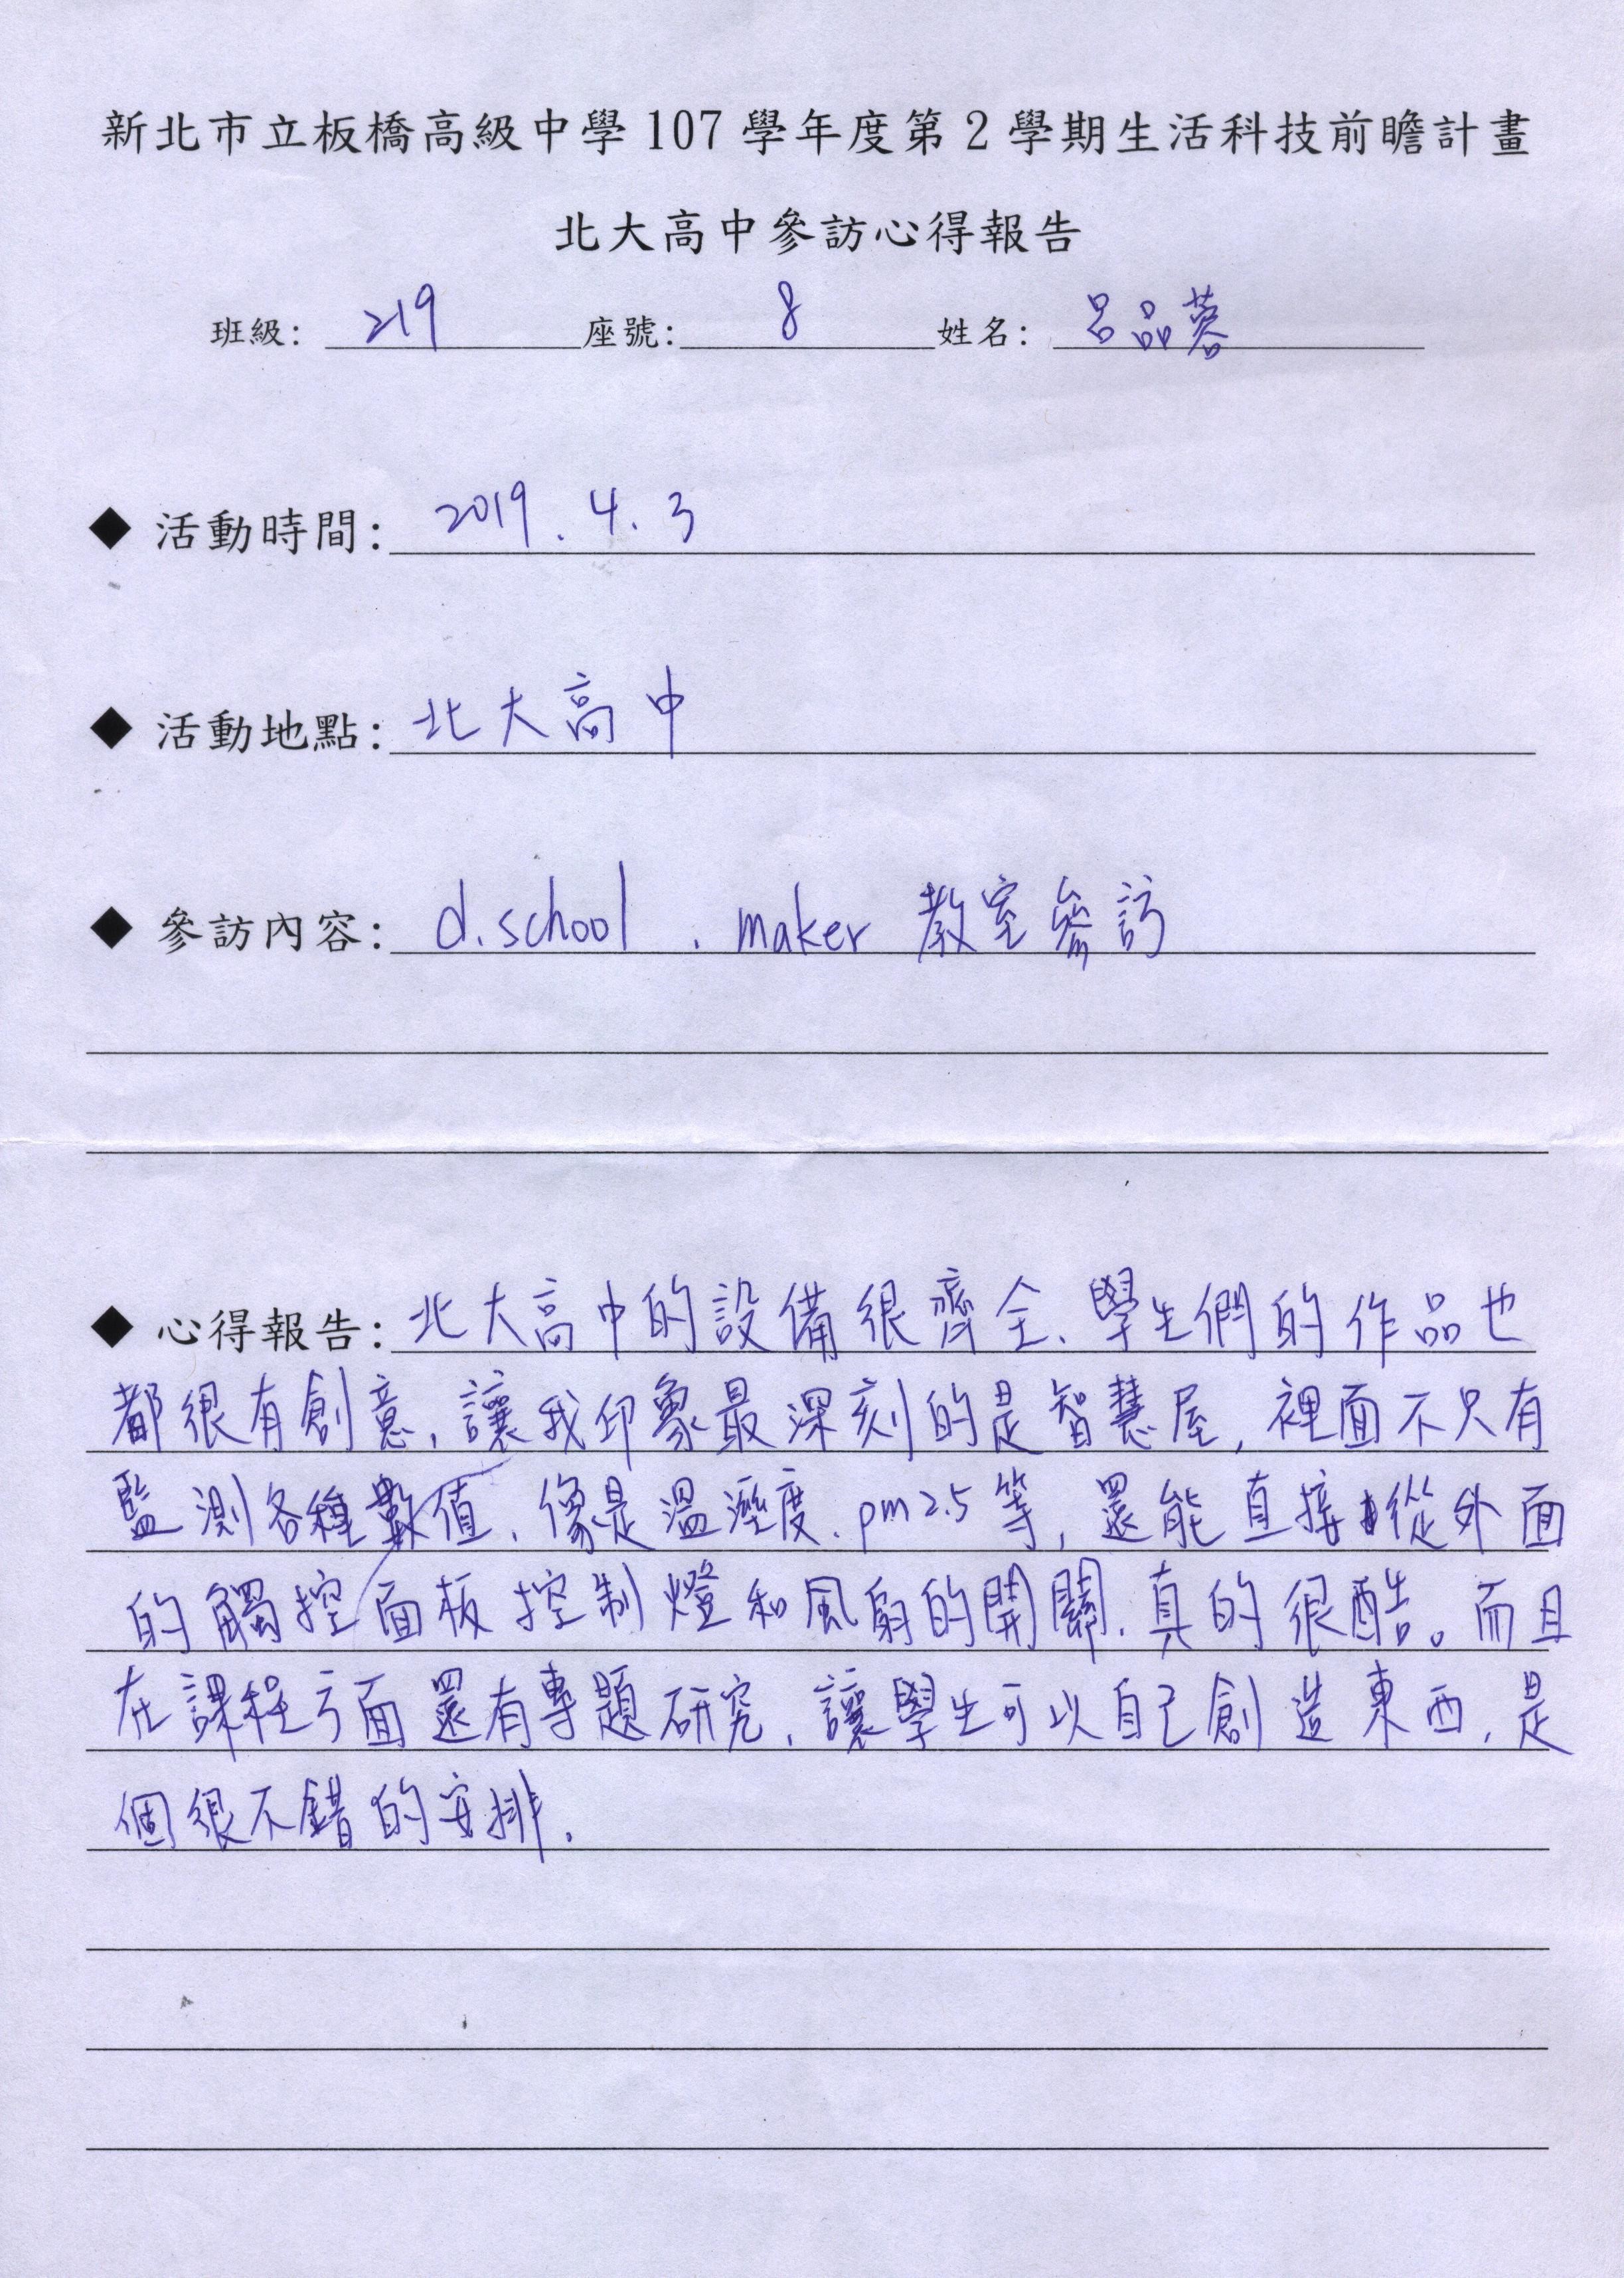 新北市立板橋高級中學107學年度第2學期生活科技前瞻計畫
北大高中參訪心得報告
班級：219 座號：8 姓名：呂品蓉
◆ 活動時間：2019.4.3
◆ 活動地點：北大高中
◆ 參訪內容：d.school、maker 教室參訪
◆ 心得報告：北大高中的設備很齊全、學生們的作品也
都很有創意，讓我印象最深刻的是智慧屋，裡面不只有
監測各種數值、像是溫溼度、pm2.5等，還能直接從外面
的觸控面板控制燈和風扇的開關，真的很酷。而且
在課程方面還有專題研究，讓學生可以自己創造東西，是
個很不錯的安排。